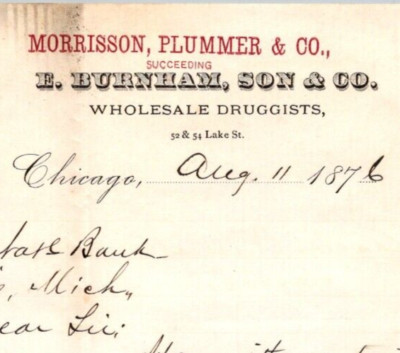 MORRISSON, PLUMMER & CO.,
SUCCEEDING
E. BURNHAM, SON & CO.
WHOLESALE DRUGGISTS,
52 & 54 Lake St.
Chicago, Aug. 11 1876
Bank
Mich,
ear Sir;